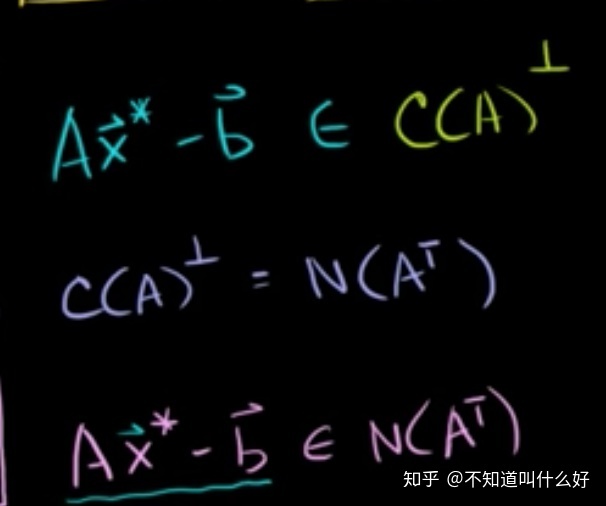 Ax⃗* - b⃗ ∈ C(A)^⊥
C(A)^⊥ = N(A^T)
Ax⃗* - b⃗ ∈ N(A^T)
知乎 @不知道叫什么好